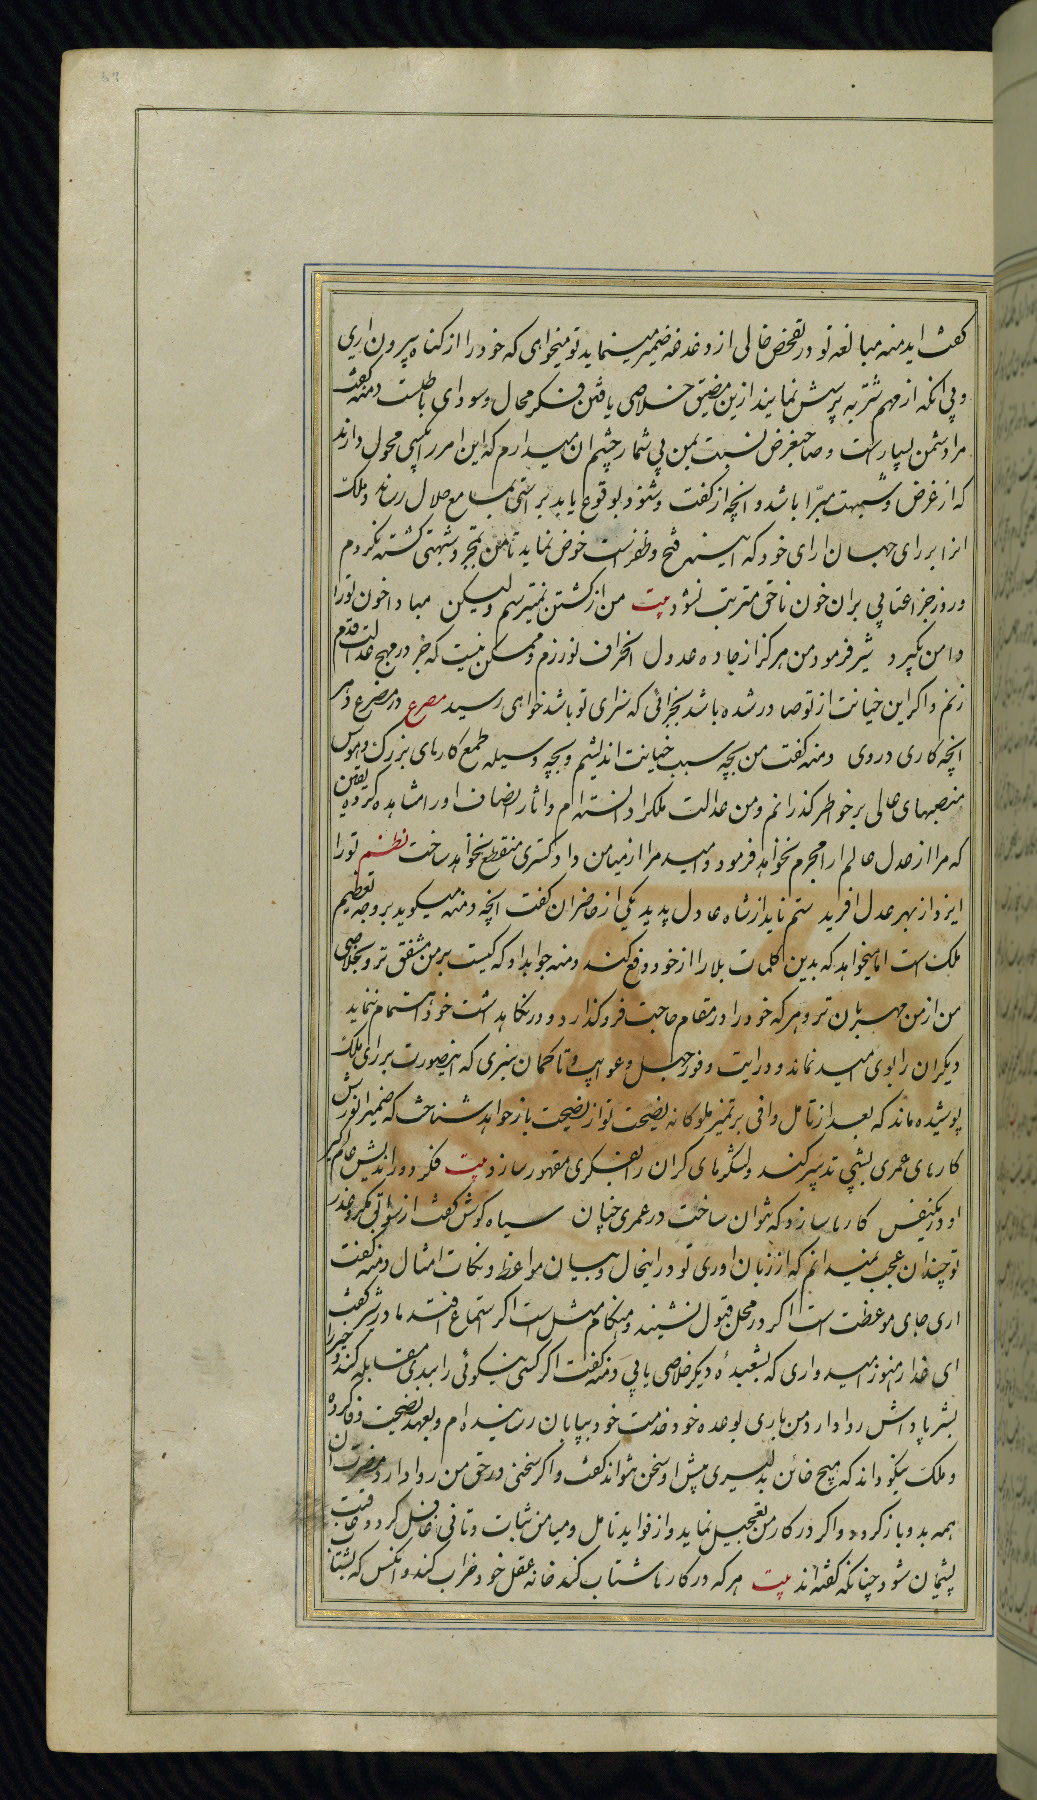 کفت ای دمنه مبالغه تو در تفحص خالی از دغدغه ضمیر مینماید تو میخواهی که خود را از کناه بیرون اری
و بی انکه از مهم شتربه پرسش نمایند ازین مضیق خلاصی یافتن فکر محال و سودای باطلست دمنه کفت
مرا دشمن بسیار است و صاحبغرض نسبت بمن بی شمار چشم ان میدارم که این امر را بکسی محول دارند
که از غرض و شبهت مبرّا باشد و انچه از کفت و شنود بوقوع یابد براستی بمسامع جلال رساند و ملک
انرا بر رای جهان ارای خود که اینه فتح و ظفرست عرض نماید تا من بمجرد شبهتی کشته نکردم
و روز جزا عقابی بران خون ناحق مترتب نشود بیت من از کشتن نمیترسم ولیکن مبادا خون تو را
دامن بکیرد شیر فرمود من هرکز از جاده عدول انحراف نورزم و ممکن نیست که جز در منهج عدالت قدم
زنم و اکر این خیانت از تو صادر شده باشد بجزائی که سزای تو باشد خواهی رسید مصرع در مزرع دهر
انچه کاری دروی دمنه کفت من بچه سبب خیانت اندیشم و بچه وسیله طمع کارهای بزرک و هوس
منصبهای عالی بر خواطر کذرانم و من عدالت ملک را دانسته ام و اثار انصاف او را مشاهده کرده یقین
که مرا از عدل عالم ارا محرم نخواهد فرمود و امید مرا از میامن دادکستری منقطع نخواهد ساخت نظم تو را
ایزد از بهر عدل افرید ستم ناید از شاه عادل پدید یکی از حاضران کفت انچه دمنه میکوید بر وجه تعظیم
ملک است اما میخواهد که بدین کلمات بلا را از خود دفع کند دمنه جواب داد که کیست بر من مشفق تر و بخلاصی
من از من مهربان تر و هر که خود را در مقام حاجت فروکذارد و در نکاهداشت خود اهتمام ننماید
دیکران را بوی امید نماند و درایت وفور جهل و غوایت تا کمان نبری که اینصورت بر رای ملک
پوشیده ماند که بعد از تامل وافی بر تمیز ملوکانه نصیحت تو از فضیحت باز خواهد شناخت که ضمیر انورش
کارهای عمری بشبی تدبیر کند و لشکرهای کران را بفکری مقهور سازد بیت فکر دوراندیش عالم کیر
او در یکنفس کارها سازد که نتوان ساخت در عمری خیان سیاه کوش کفت از سوابق مکر و غدر
تو چندان عجب نمیدانم که از زبان اوری تو در اینحال و بیان مواعظ و نکات امثال دمنه کفت
اری جای موعظت است اکر در محل قبول نشیند و هنکام مثل است اکر استماع افتد مادر شیر کفت
ای غدار هنوز امیدواری که بشعبدهٔ دیکر خلاصی یابی دمنه کفت اکر کسی نیکوئی را ببدی مقابله کند و خیر را
بشر پاداش روا دارد من باری بوعده خود خدمت خود بپایان رسانیده ام و بعهد نصیحت وفا کرده
و ملک نیکو داند که هیچ خائن بدلیری پیش او سخن نتواند کفت و اکر سخنی در حق من روا دارد مضرت ان
همه بدو بازکردد و اکر در کار من تعجیل نماید و از فواید تامل و میامن ثبات و تانی غافل کردد عاقبت
پشیمان شود چنانکه کفته اند بیت هر که در کارها شتاب کند خانه عقل خود خراب کند وانکس که بشتاب